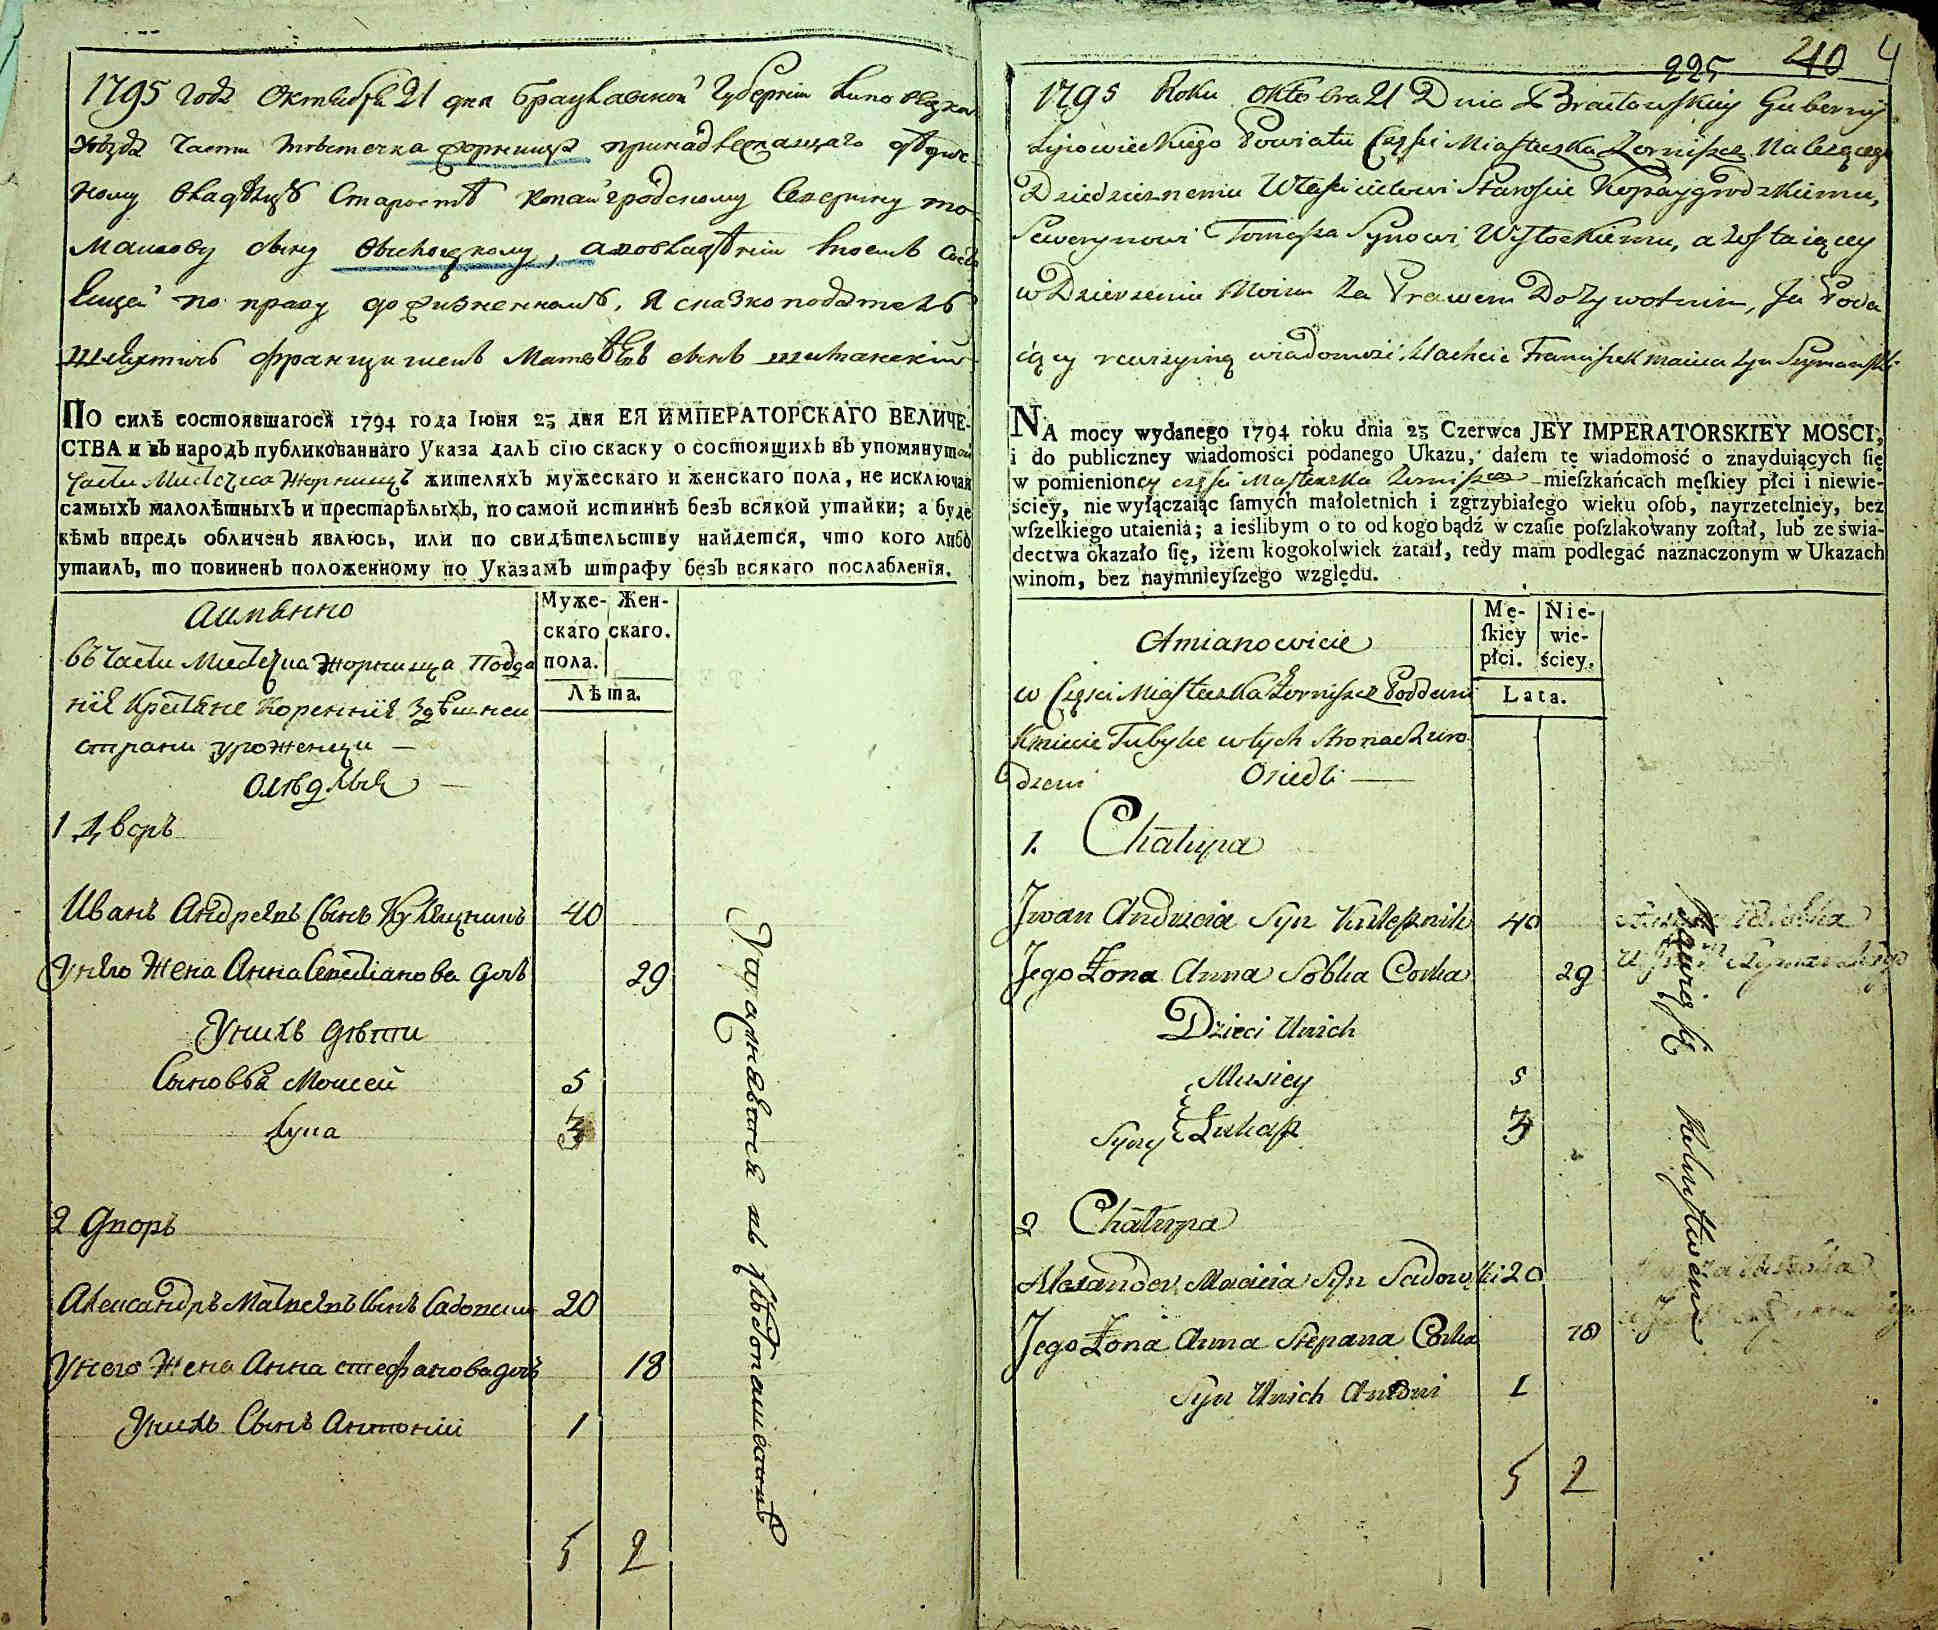 1795 года Октября 21 дня Брацлавской Губернии Липовецкаго
уѣзда части мѣстечка Жорнищъ принадлежащаго
владѣльцѣ Старостѣ Копайгродскому Северину То
машову сыну Высоцкому, а во владѣнии моемъ
по праву до жизненномъ, Я сказкоподатель
шляхтичъ Францишекъ Матвѣевъ сынъ Шиманский
ПО силѣ состоявшагося 1794 года Іюня 23 дня ЕЯ ИМПЕРАТОРСКАГО ВЕЛИЧЕ-
СТВА и въ народъ публикованнаго Указа далъ сію скаску о состоящихъ въ упомянутой
части Мистечка Жорнищъ жителяхъ мужескаго и женскаго пола, не исключая
самыхъ малолѣтныхъ и престарѣлыхъ, по самой истиннѣ безъ всякой утайки; а буде
кѣмъ впредь обличенъ явлюсь, или по свидѣтельству найдется, что кого либо
утаилъ, то повиненъ положенному по Указамъ штрафу безъ всякаго послабленія.
Аимянно
въ Части Мистечка Жорнища Подда
ніе Крестяне Коренніе Здѣшнеи
страни уроженци —
Осѣдлыя —
Муже-
скаго
пола.
Жен-
скаго.
Лѣта.
1 Дворъ
Иванъ Андреевъ Сынъ Кулешникъ 40
Унего Жена Анна дочь 29
Унихъ дѣти
Сыновья Моисей 5
Лука 3
2 Дворъ
Александръ Матвеевъ Сынъ Садовски 20
Унего Жена Анна Стефанова дочь 18
Унихъ Сынъ Антоний 1
5 2
225 240 4
1795 Roku Oktobra 21 Dnia Bracławskiey Gubernij
Lipowieckiego Powiatu Części Miasteczka Żornisz Należącego
Dziedzicznemu Właścicielowi Staroście Kopaygrodzkiemu,
Sewerynowi Tomasza Synowi Wysockiemu, a zostaiącey
w Dzierżeniu Moim za Prawem Dożywotnim, Ja Poda
iący rewizyiną wiadomość Szlachcic Franciszek Macieia Syn Szymański
NA mocy wydanego 1794 roku dnia 23 Czerwca JEY IMPERATORSKIEY MOSCI,
i do publiczney wiadomości podanego Ukazu, dałem tę wiadomość o znayduiących ſię
w pomienioney części Miasteczka Żornisz mieſzkańcach męſkiey płci i niewie-
ściey, nie wyłączaiąc ſamych małoletnich i zgrzybiałego wieku oſob, nayrzetelniey, bez
wſzelkiego utaienia; a ieślibym o to od kogo bądź w czaſie poſzlakowany zoſtał, lub ze świa-
dectwa okazało się, iżem kogokolwiek zataił, tedy mam podlegać naznaczonym w Ukazach
winom, bez naymnieyſzego względu.
Amianowicie
w Części Miasteczka Żornisz Poddani
Kmiecie Tubylce w tych Stronach Uro
dzeni Osiedli —
Mę-
ſkiey
płci.
Nie-
wie-
ściey.
Lata.
1. Chałupa
Jwan Andrzeia Syn Kulesznik 40
Jego Żona Anna Sobka Corka 29
Dzieci Unich
Musiey 5
Syny Łukasz 3
2 Chałupa
Alexander Macieia Syn Sadowski 20
Jego Żona Anna Stepana Corka 18
Syn Unich Antoni 1
5 2